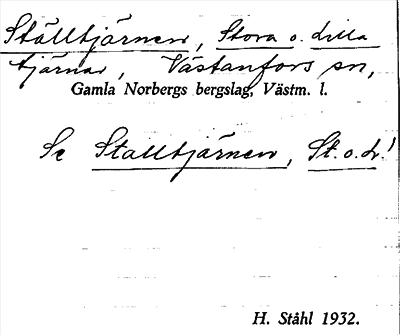 Ställtjärnen, Stora o. Lilla
tjärnar, Västanfors sn,
Gamla Norbergs bergslag, Västm. l.
Se Stalltjärnen, St. o. L.!
H. Ståhl 1932.